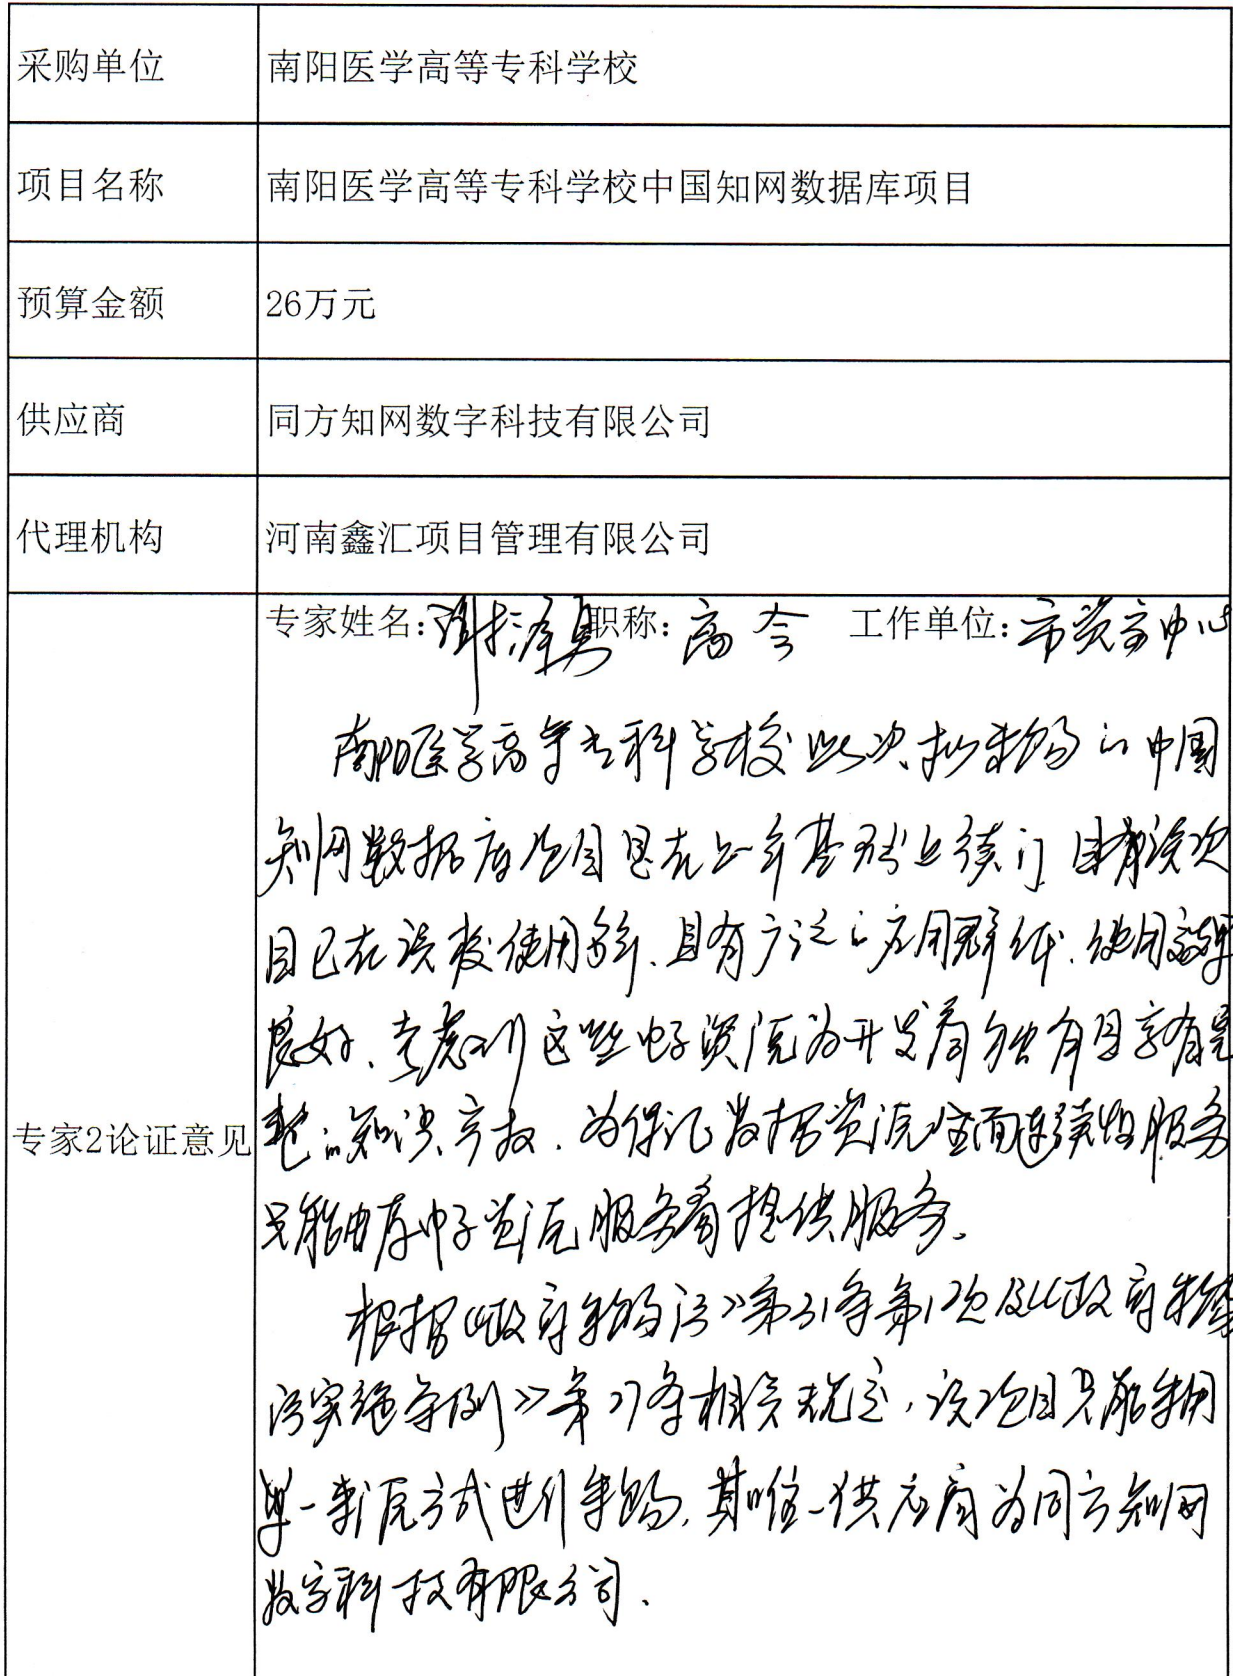 采购单位 南阳医学高等专科学校
项目名称 南阳医学高等专科学校中国知网数据库项目
预算金额 26万元
供应商 同方知网数字科技有限公司
代理机构 河南鑫汇项目管理有限公司
专家姓名: 职称: 高会 工作单位: 市资京中心
南阳医学高等专科学校此次拟采购的中国
知网数据库项目是在上年基础上续订.目前该项
目已在该校使用多年、具有广泛的应用群体、使用效果
良好、考虑到这些电子资源为开发商独有且享有完
整的知识产权.为保证数据资源全面连续性服务
专家2论证意见
只能由原电子资源服务商提供服务。
根据《政府采购法》第31条第1项及《政府采购
法实施条例》第27条相关规定,该项目只能采用
单一来源方式进行采购,其唯一供应商为同方知网
数字科技有限公司.